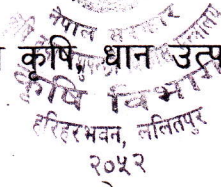 नेपाल सरकार
कृषि, धान उत्प
कृषि विभाग
हरिहरभवन, ललितपुर
२०५२